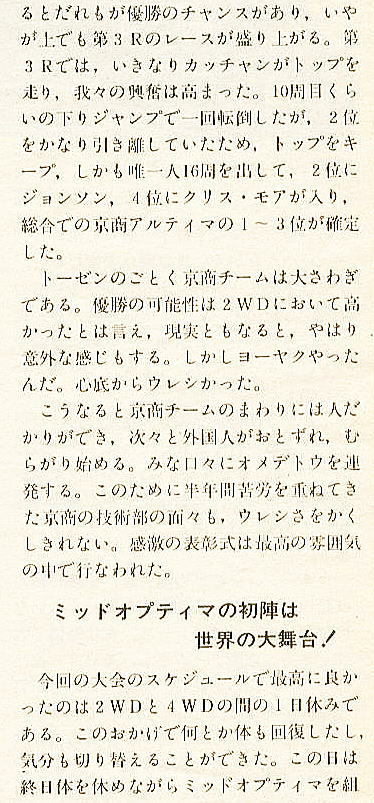 るとだれもが優勝のチャンスがあり，いや
が上でも第3Rのレースが盛り上がる。第
3Rでは，いきなりカッチャンがトップを
走り，我々の興奮は高まった。10周目くら
いの下りジャンプで一回転倒したが，2位
をかなり引き離していたため，トップをキ
ープ，しかも唯一人16周を出して，2位に
ジョンソン，4位にクリス・モアが入り，
総合での京商アルティマの1～3位が確定
した。
トーゼンのごとく京商チームは大さわぎ
である。優勝の可能性は2WDにおいて高
かったとは言え，現実ともなると，やはり
意外な感じもする。しかしヨーヤクやった
んだ。心底からウレシかった。
こうなると京商チームのまわりには人だ
かりができ，次々と外国人がおとずれ，む
らがり始める。みな口々にオメデトウを連
発する。このために半年間苦労を重ねてき
た京商の技術部の面々も，ウレシさをかく
しきれない。感激の表彰式は最高の雰囲気
の中で行なわれた。
ミッドオプティマの初陣は
世界の大舞台！
今回の大会のスケジュールで最高に良か
ったのは2WDと4WDの間の1日休みで
ある。このおかげで何とか体も回復したし，
気分も切り替えることができた。この日は
終日体を休めながらミッドオプティマを組